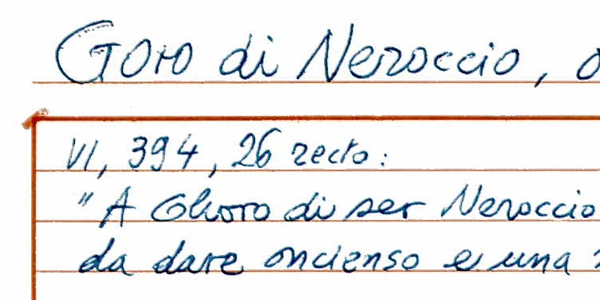 Goro di Neroccio, o
VI, 394, 26 recto:
"A Ghoro di ser Neroccio
da dare oncienso e una